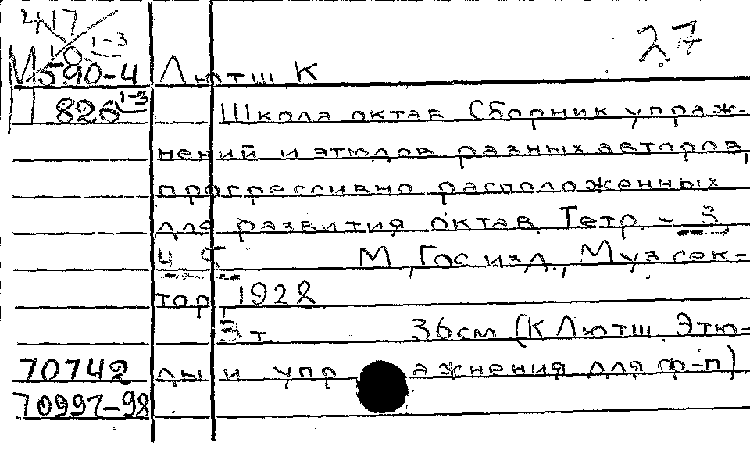 417
10 1-3
27
М 590-4 Лютш К
П 826 1-3 Школа октав Сборник упраж-
нений и этюдов разных авторов,
прогрессивно расположенных
для развития октав Тетр - 3,
4, 5 М, Гос изд, Муз сек-
тор, 1928
3 т 36 см (К Лютш. Этю-
70742 ды и упражнения для ф-п)
70997-98